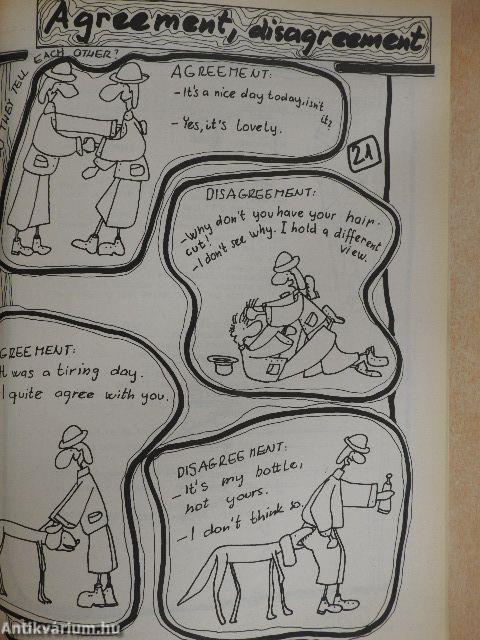 Agreement, disagreement
THEY TELL EACH OTHER?
AGREEMENT:
- It's a nice day today, isn't
it?
- Yes, it's lovely.
21
DISAGREEMENT:
- Why don't you have your hair
cut!
- I don't see why. I hold a different
view.
GREEMENT:
It was a tiring day.
I quite agree with you.
DISAGREEMENT:
- It's my bottle,
not yours.
- I don't think so.
Antikvárium.hu